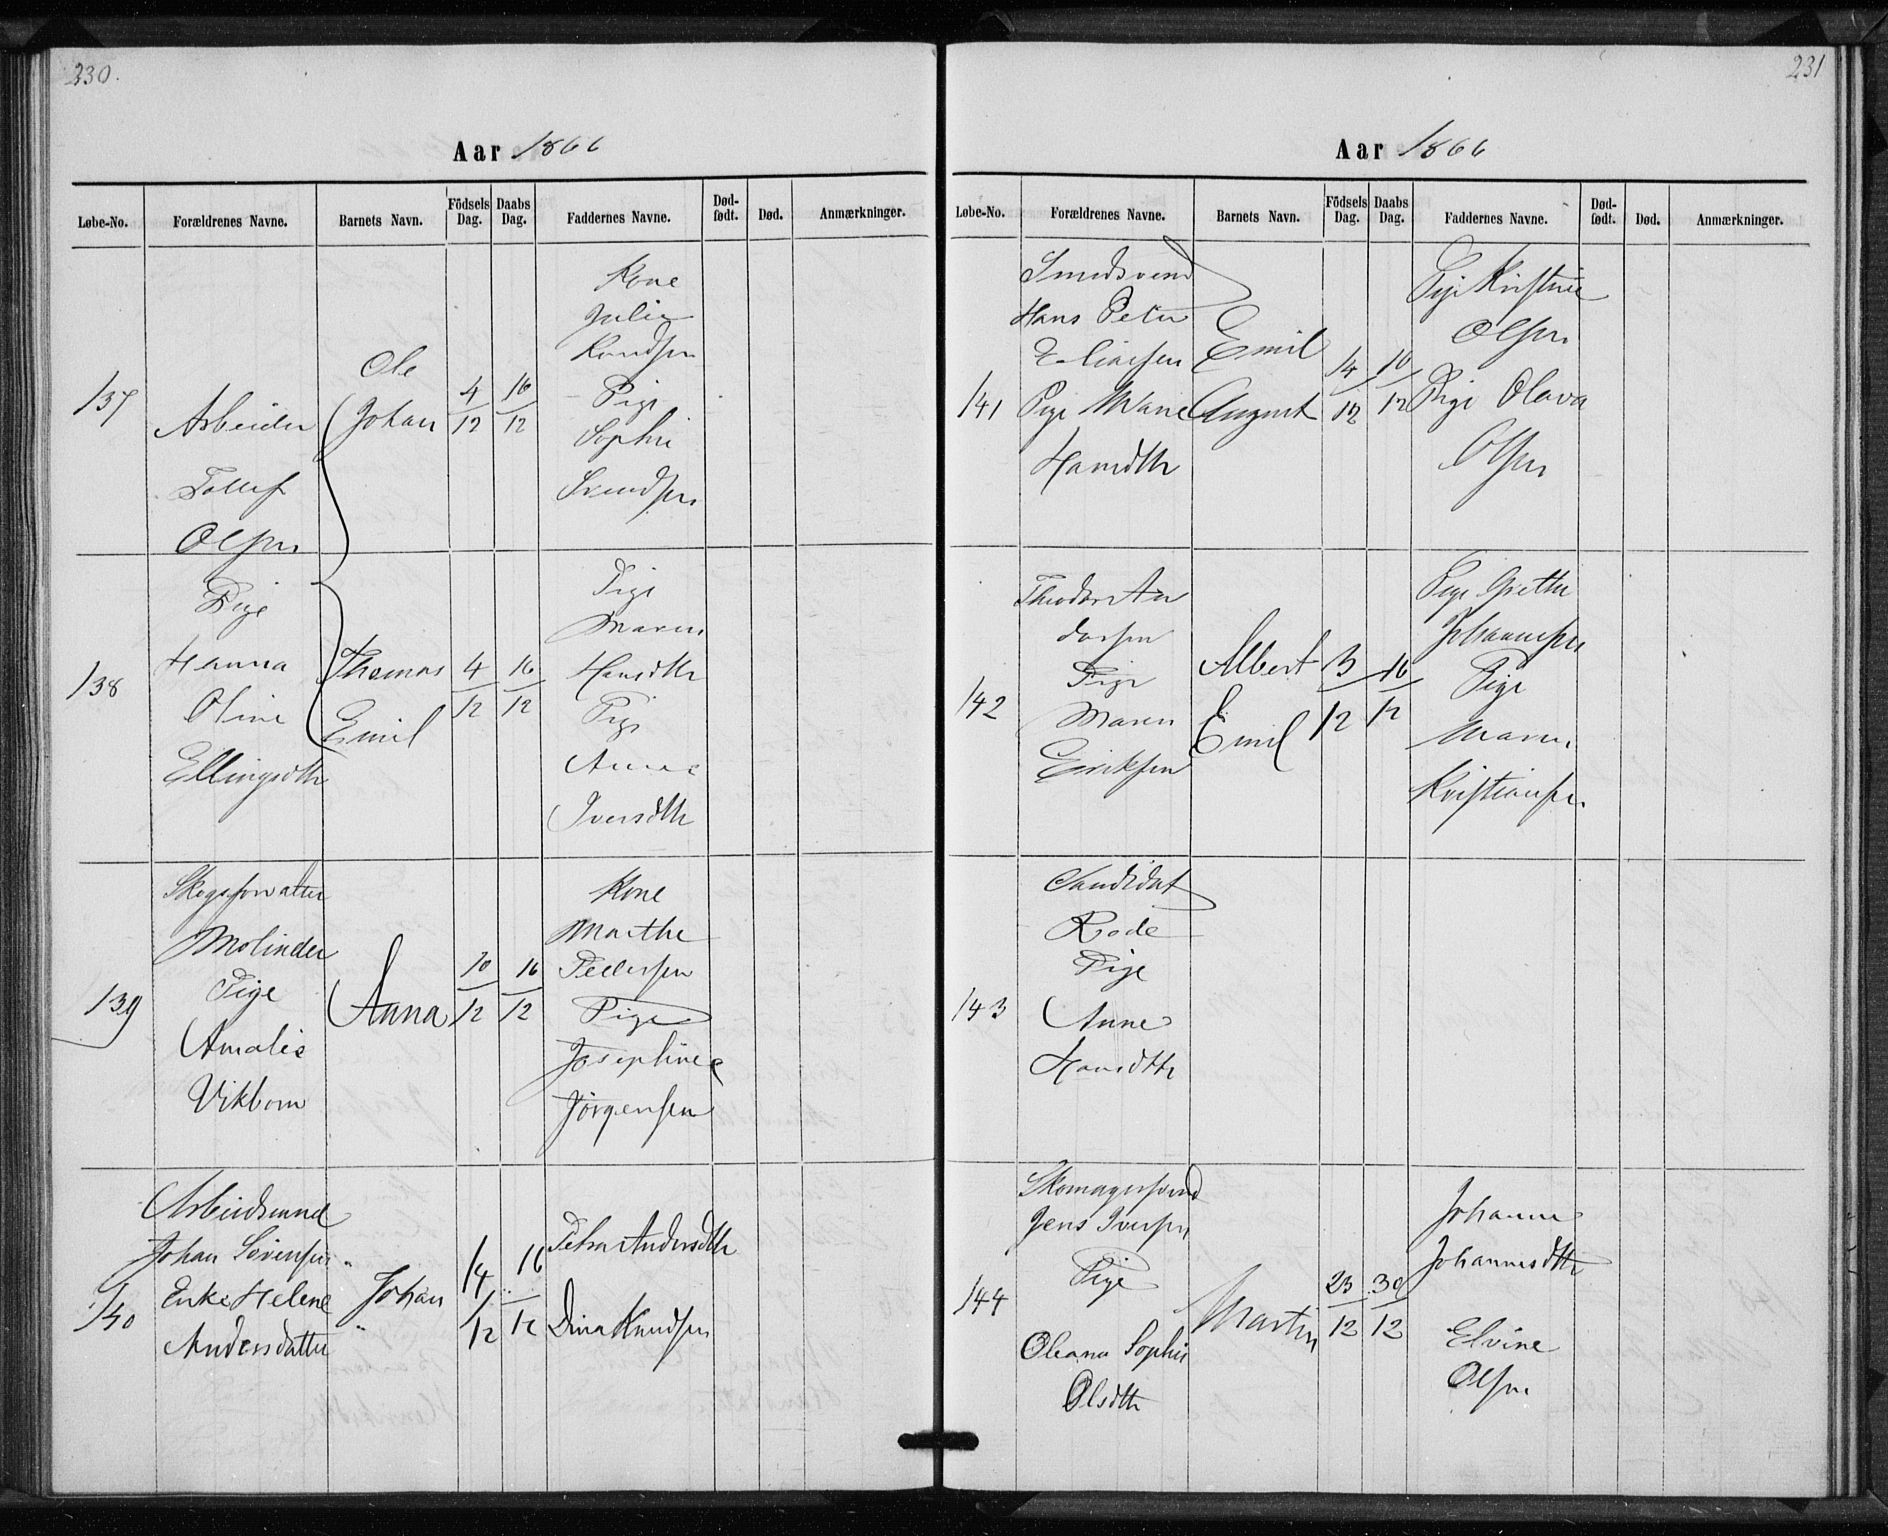 230.
Aar 1866
Løbe-No. Forældrenes Navne. Barnets Navn. Fødsels Dag. Daabs Dag. Faddernes Navne. Død-født. Død. Anmærkninger.
137
Arbeider
Tollef
Olsen
Pige
Hanna
Oline
Ellingsdtr
Ole
Johan
4/12
16/12
Kone
Julie
Knudsen
Pige
Sophie
Svendsen
138
Thomas
Emil
4/12
16/12
Pige
Maren
Hansdtr
Pige
Anne
Iversdtr
139
Skogsforvalter
Molinder
Pige
Amalie
Vikbom
Anna
10/12
16/12
Kone
Marthe
Pedersen
Pige
Josephine
Jørgensen
140
Arbeidsmand
Johan Sørensen
Enke Helene
Andersdatter
Johan
14/12
16/12
Petra Andersdtr
Dina Knudsen
231
Aar 1866
Løbe-No. Forældrenes Navne. Barnets Navn. Fødsels Dag. Daabs Dag. Faddernes Navne. Død-født. Død. Anmærkninger.
141
Smedsvend
Hans Peter
Eliassen
Pige Marie
Hansdtr
Emil
August
14/12
Pige Kristine
Olsen
Pige Olava
Olsen
142
Theodor An
dersen
Pige
Maren
Eriksen
Albert
Emil
3/12
16/12
Pige Grethe
Johannesen
Pige
Maren
Kristiansen
143
Candidat
Rode
Pige
Anne
Hansdtr
144
Skomagersvend
Jens Iversen
Pige
Oleana Sophie
Olsdtr
Martin
23/12
30/12
Johanne
Johannesdtr
Elvine
Olsen